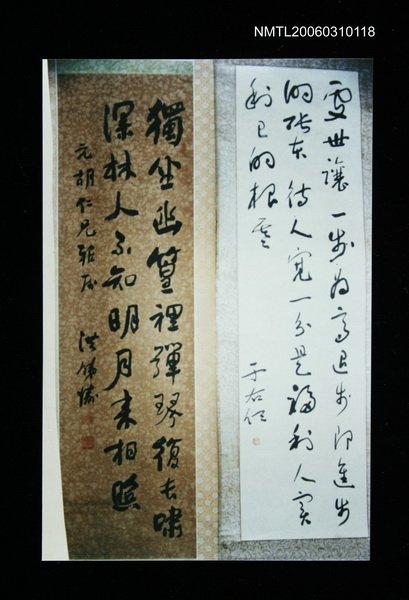 NMTL20060310118
處世讓一步為高退步即進步
的張本待人寬一分是福利人實
利己的根基
于右任
獨坐幽篁裡彈琴復長嘯
深林人不知明月來相照
元胡仁兄雅屬